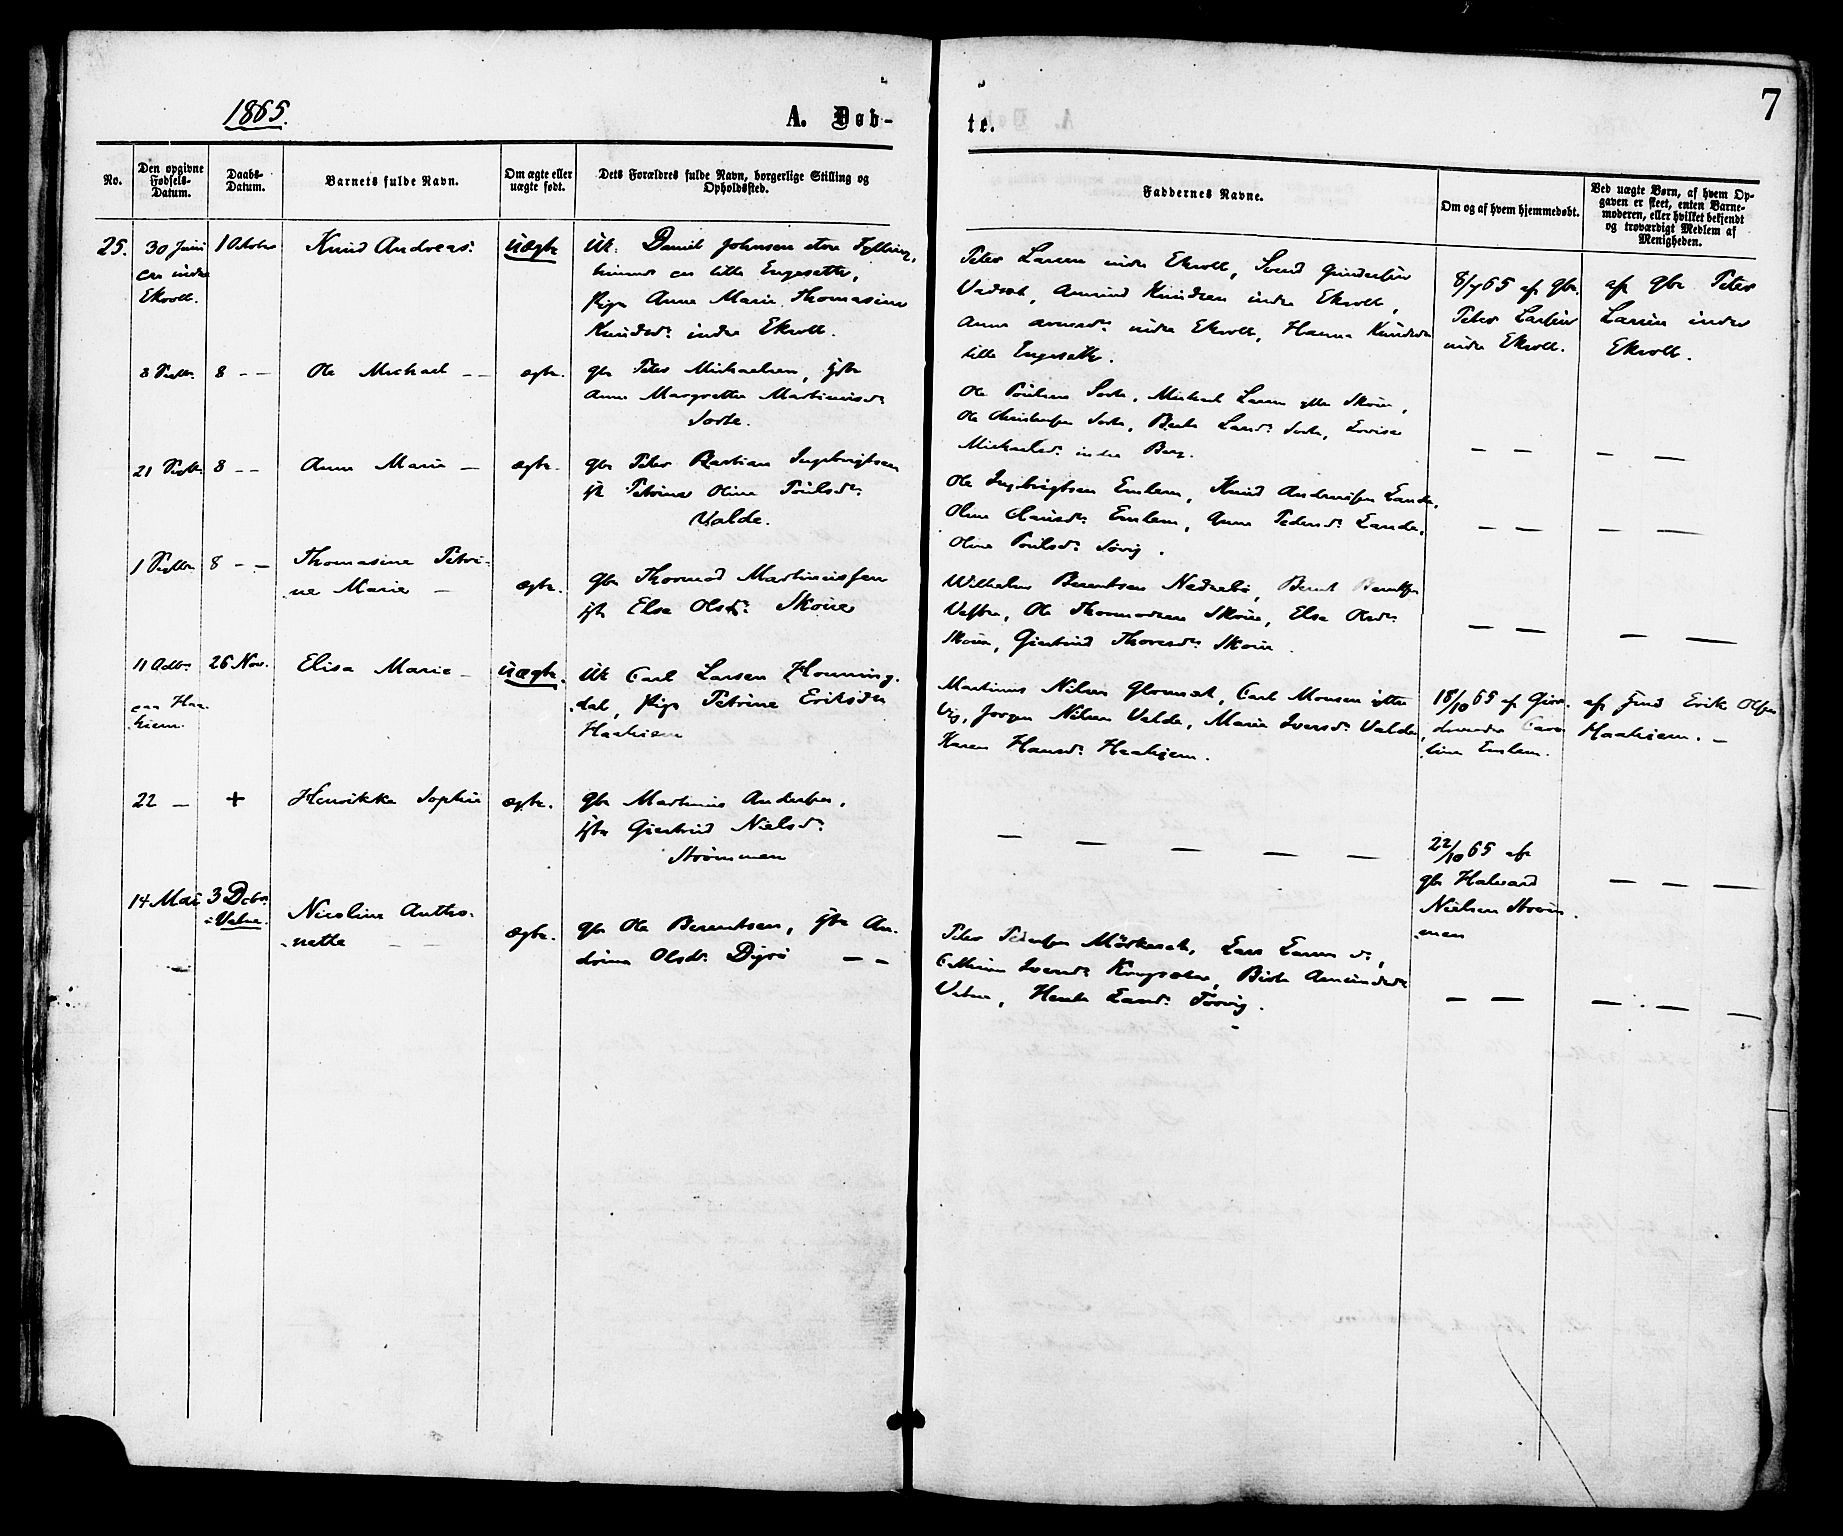 1865.
A. Døb-
te.
7
No.
Den opgivne Fødsels-Datum.
Daabs-Datum.
Barnets fulde Navn.
Om ægte eller uægte født.
Dets Forældres fulde Navn, borgerlige Stilling og Opholdssted.
Faddernes Navne.
Om og af hvem hjemmedøbt.
Ved uægte Børn, af hvem Opgaven er skeet, enten Barnemoderen, eller hvilket bekjendt og troværdigt Medlem af Menigheden.
25.
30 Juni
indre
Ekroll.
1 Octobr
Knud Andreas.
uægte
Uk. Daniel Johnsen store
lille Engesætter,
Pige Anne Marie Thomasine
Knudsdr. indre Ekroll.
Peter Larsen indre Ekroll, Svend
Amund Knudsen indre Ekroll,
Anne indre Ekroll, Hanna Knudsdr
lille Engesætr.
8/7 65 af gbr.
Peter Larsen
indre Ekroll.
af gbr Peter
Larsen indre
Ekroll.
8 Septbr.
8 – –
Ole Michael – –
ægte.
gbr Peter Michaelsen,
Anne Margrethe Martinusdr
Sorte.
Ole Poulsen Sorte, Michael Larsen ytre Skoue,
Ole Sorte, Berte Larsdr. Sorte, Lovise
Michaelsdr. indre Berg.
– –
– –
21 Septbr.
8 – –
Anne Marie –
ægte.
gbr Peter Bastian Ingebrigtsen
Petrine Oline Poulsdr.
Valde.
Ole Ingebrigtsen Emlem, Knud Andersen Lande,
Oline Emlem, Anne Pedersdr. Lande,
Oline Poulsdr. Søvig.
– –
– –
1 Septbr
8 – –
Thomasine Petri-
ne Marie –
ægte.
gbr Thormod Martinussen
Else Olsdr. Skoue
Wilhelm Berentsen Nedrebø, Bernt
Vestre, Ole Thormodsen Skoue, Else Olsdr.
Skoue, Giertrud Thoresdr. Skoue.
– –
– –
11 Octbr.
Haa-
hiem.
26 Nov.
Elisa Marie –
uægte.
Uk Carl Larsen Honning-
dal, Pige Petrine Eriksdr
Haahiem
Martinus Nilsen Glomset, Carl Monsen ytre
Vig, Jørgen Nilsen Valde, Marie Iversdr. Valde,
Karen Hansdr. Haahjem.
18/10 65 af Gjor-
demoder Caro-
line Emlem.
af Erik Olsen
Haahiem. –
22 –
+
Henrikke Sophie
ægte.
gbr Martinus Andersen,
Giertrud Nielsdr.
Strømmen
– – – – –
22/10 65 af
gbr Halvard
Nielsen Strøm-
men
– – –
14 Mai
3 Dcbr
i Vatne.
Nicoline Antho-
nette – –
ægte.
gbr Ole Berentsen, An-
drine Olsdr. Dyrø – –
Peter Pedersen Lars Larsen
Iversdr. Birte Amundsdr
Vatne, Larsdr. Tørvig.
– –
– – –